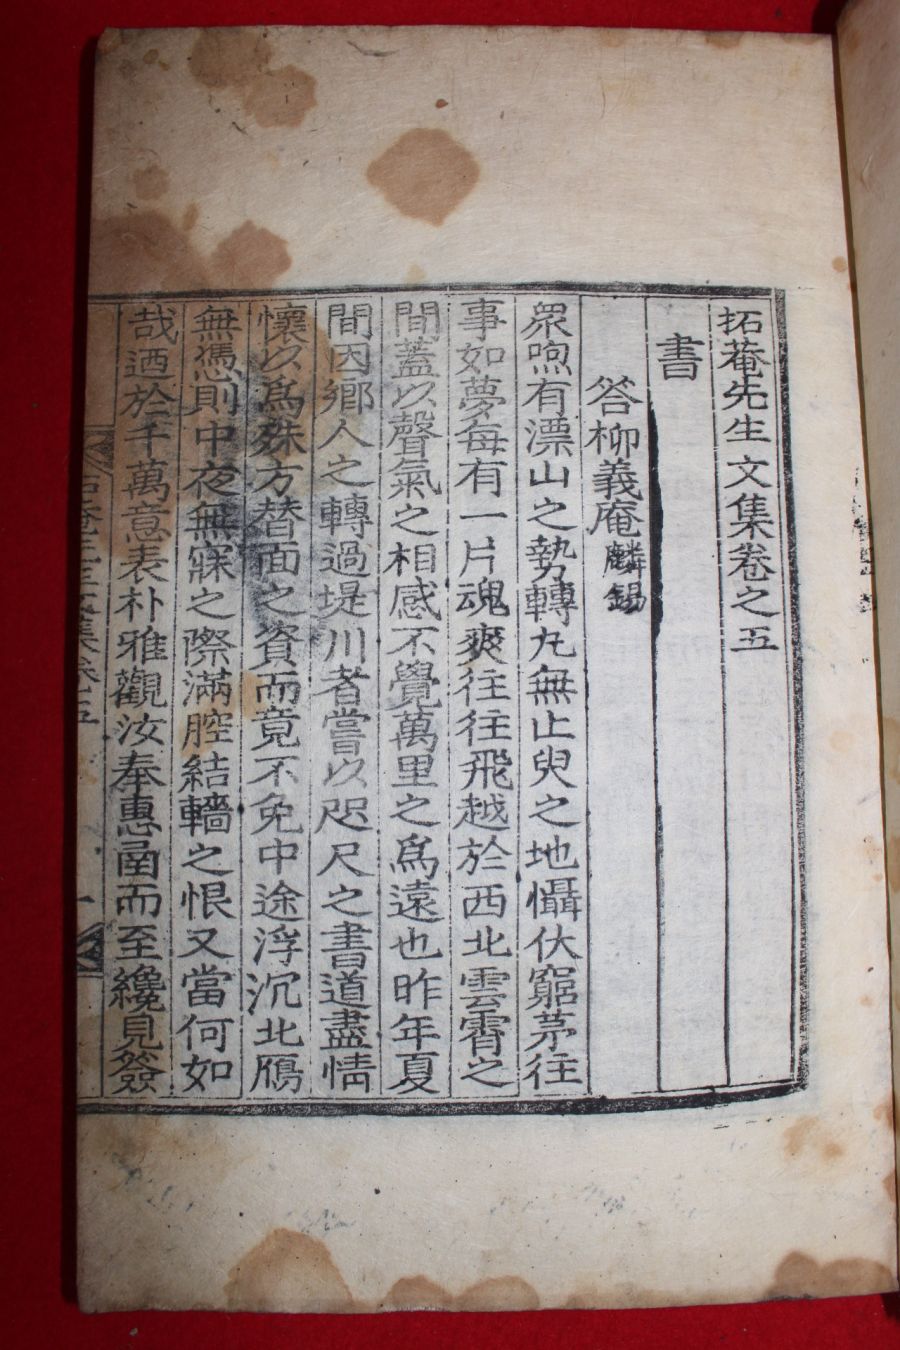 拓菴先生文集卷之五
書
答柳義庵麟錫
衆喣有漂山之勢轉九無止臾之地懾伏窮茅往
事如夢每有一片魂爽往往飛越於西北雲霄之
間蓋以聲氣之相感不覺萬里之爲遠也昨年夏
間因鄉人之轉過堤川者嘗以咫尺之書道盡情
懷以爲殊方替面之資而竟不免中途浮沉北鴈
無憑則中夜無寐之際滿腔結轖之恨又當何如
哉迺於千萬意表朴雅觀汝奉惠凾而至纔見簽